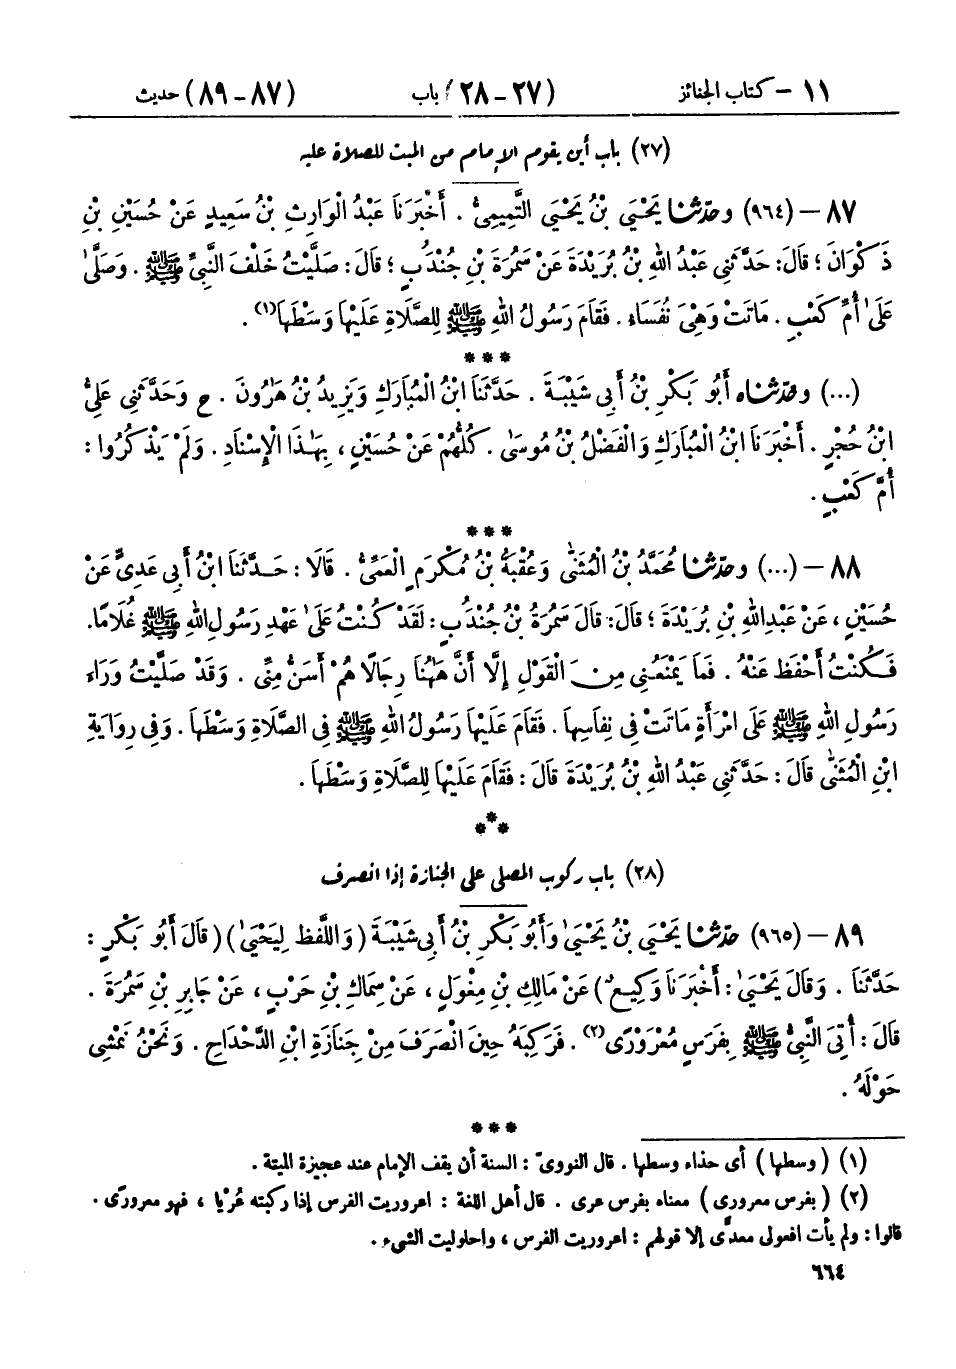 ١١ – كتاب الجنائز (٢٧ – ٢٨) باب (٨٧ – ٨٩) حديث
(٢٧) باب أين يقوم الإمام من الميت للصلاة عليه
٨٧ – (٩٦٤) وحدّثنا يَحْيَى بْنُ يَحْيَى التَّمِيمِىُّ . أَخْبَرَنَا عَبْدُ الْوَارِثِ بْنُ سَعِيدٍ عَنْ حُسَيْنِ بْنِ
ذَكْوَانَ ؛ قَالَ : حَدَّثَنِى عَبْدُ اللهِ بْنُ بُرَيْدَةَ عَنْ سَمُرَةَ بْنِ جُنْدَُبٍ ؛ قَالَ : صَلَّيْتُ خَلْفَ النَّبِىِّ ﷺ . وَصَلَّىٰ
عَلَىٰ أُمِّ كَعْبٍ . مَاتَتْ وَهِىَ نُفَسَاءُ . فَقَامَ رَسُولُ اللهِ ﷺ لِلصَّلَاةِ عَلَيْهَا وَسَطَهَا(١) .
* * *
(...) وحدّثناه أَبُو بَكْرِ بْنُ أَبِى شَيْبَةَ . حَدَّثَنَا ابْنُ الْمُبَارَكِ وَيَزِيدُ بْنُ هَٰرُونَ . ح وَحَدَّثَنِى عَلِىُّ
ابْنُ حُجْرٍ . أَخْبَرَنَا ابْنُ الْمُبَارَكِ وَالْفَضْلُ بْنُ مُوسَىٰ . كُلُّهُمْ عَنْ حُسَيْنٍ ، بِهَٰذَا الْإِسْنَادِ . وَلَمْ يَذْكُرُوا :
أُمَّ كَعْبٍ .
* * *
٨٨ – (...) وحدّثنا مُحَمَّدُ بْنُ الْمُثَنَّىٰ وَعُقْبَةُ بْنُ مُكْرَمٍ الْعَمِّىُّ . قَالَا : حَدَّثَنَا ابْنُ أَبِى عَدِىٍّ عَنْ
حُسَيْنٍ ، عَنْ عَبْدِ اللهِ بْنِ بُرَيْدَةَ ؛ قَالَ : قَالَ سَمُرَةُ بْنُ جُنْدَُبٍ : لَقَدْ كُنْتُ عَلَىٰ عَهْدِ رَسُولِ اللهِ ﷺ غُلَامًا .
فَكُنْتُ أَحْفَظُ عَنْهُ . فَمَا يَمْنَعُنِى مِنَ الْقَوْلِ إِلَّا أَنَّ هَٰهُنَا رِجَالًا هُمْ أَسَنُّ مِنِّى . وَقَدْ صَلَّيْتُ وَرَاءَ
رَسُولِ اللهِ ﷺ عَلَى امْرَأَةٍ مَاتَتْ فِى نِفَاسِهَا . فَقَامَ عَلَيْهَا رَسُولُ اللهِ ﷺ فِى الصَّلَاةِ وَسَْطَهَا . وَفِى رِوَايَةِ
ابْنِ الْمُثَنَّىٰ قَالَ : حَدَّثَنِى عَبْدُ اللهِ بْنُ بُرَيْدَةَ قَالَ : فَقَامَ عَلَيْهَا لِلصَّلَاةِ وَسَْطَهَا .
* * *
(٢٨) باب ركوب المصلى على الجنازة إذا انصرف
٨٩ – (٩٦٥) حدّثنا يَحْيَى بْنُ يَحْيَىٰ وَأَبُو بَكْرِ بْنُ أَبِى شَيْبَةَ ( وَاللَّفْظُ لِيَحْيَىٰ ) ( قَالَ أَبُو بَكْرٍ :
حَدَّثَنَا . وَقَالَ يَحْيَىٰ : أَخْبَرَنَا وَكِيعٌ ) عَنْ مَالِكِ بْنِ مِغْوَلٍ ، عَنْ سِمَاكِ بْنِ حَرْبٍ ، عَنْ جَابِرِ بْنِ سَمُرَةَ .
قَالَ : أُتِىَ النَّبِىُّ ﷺ بِفَرَسٍ مُعْرَوْرًى(٢) . فَرَكِبَهُ حِينَ انْصَرَفَ مِنْ جَنَازَةِ ابْنِ الدَّحْدَاحِ . وَنَحْنُ نَمْشِى
حَوْلَهُ .
* * *
(١) ( وسطها ) أى حذاء وسطها . قال النووىّ : السنة أن يقف الإمام عند عجيزة الميتة .
(٢) ( بفرس معرورى ) معناه بفرس عرى . قال أهل اللغة : اعروريت الفرس إذا ركبته عُرْيا ، فهو معرورًى .
قالوا : ولم يأت افعولى معدًّى إلا قولهم : اعروريت الفرس ، واحلوليت الشىء .
٦٦٤